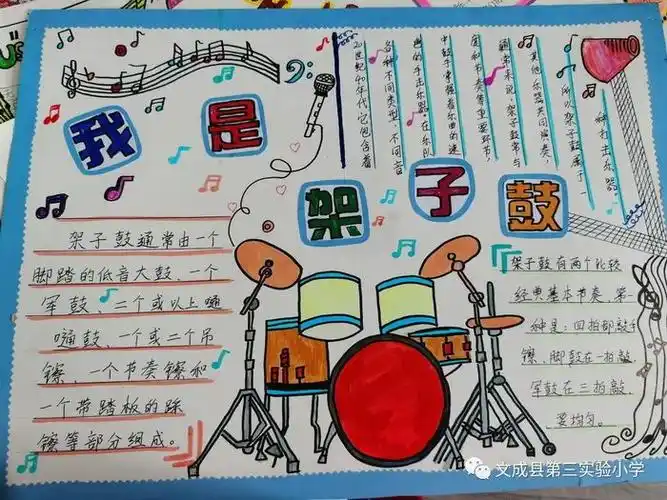 我是
架子鼓
20世纪40年代,它包含着
各种不同类型,不同音
色的手击乐器。在乐队
中鼓手掌握着乐曲的速
度和节奏等重要环节,
通常来说,架子鼓常与
其他乐器共同演奏,
所以架子鼓属于
一种打击乐器。
架子鼓通常由一个
脚踏的低音大鼓、一个
军鼓、二个或以上嗵
嗵鼓、一个或二个吊
镲、一个节奏镲和
一个带踏板的踩
镲等部分组成。
架子鼓有两个比较
经典基本节奏,第一
种是:四拍都敲
镲,脚鼓在一拍敲,
军鼓在三拍敲,
要均匀。
文成县第三实验小学